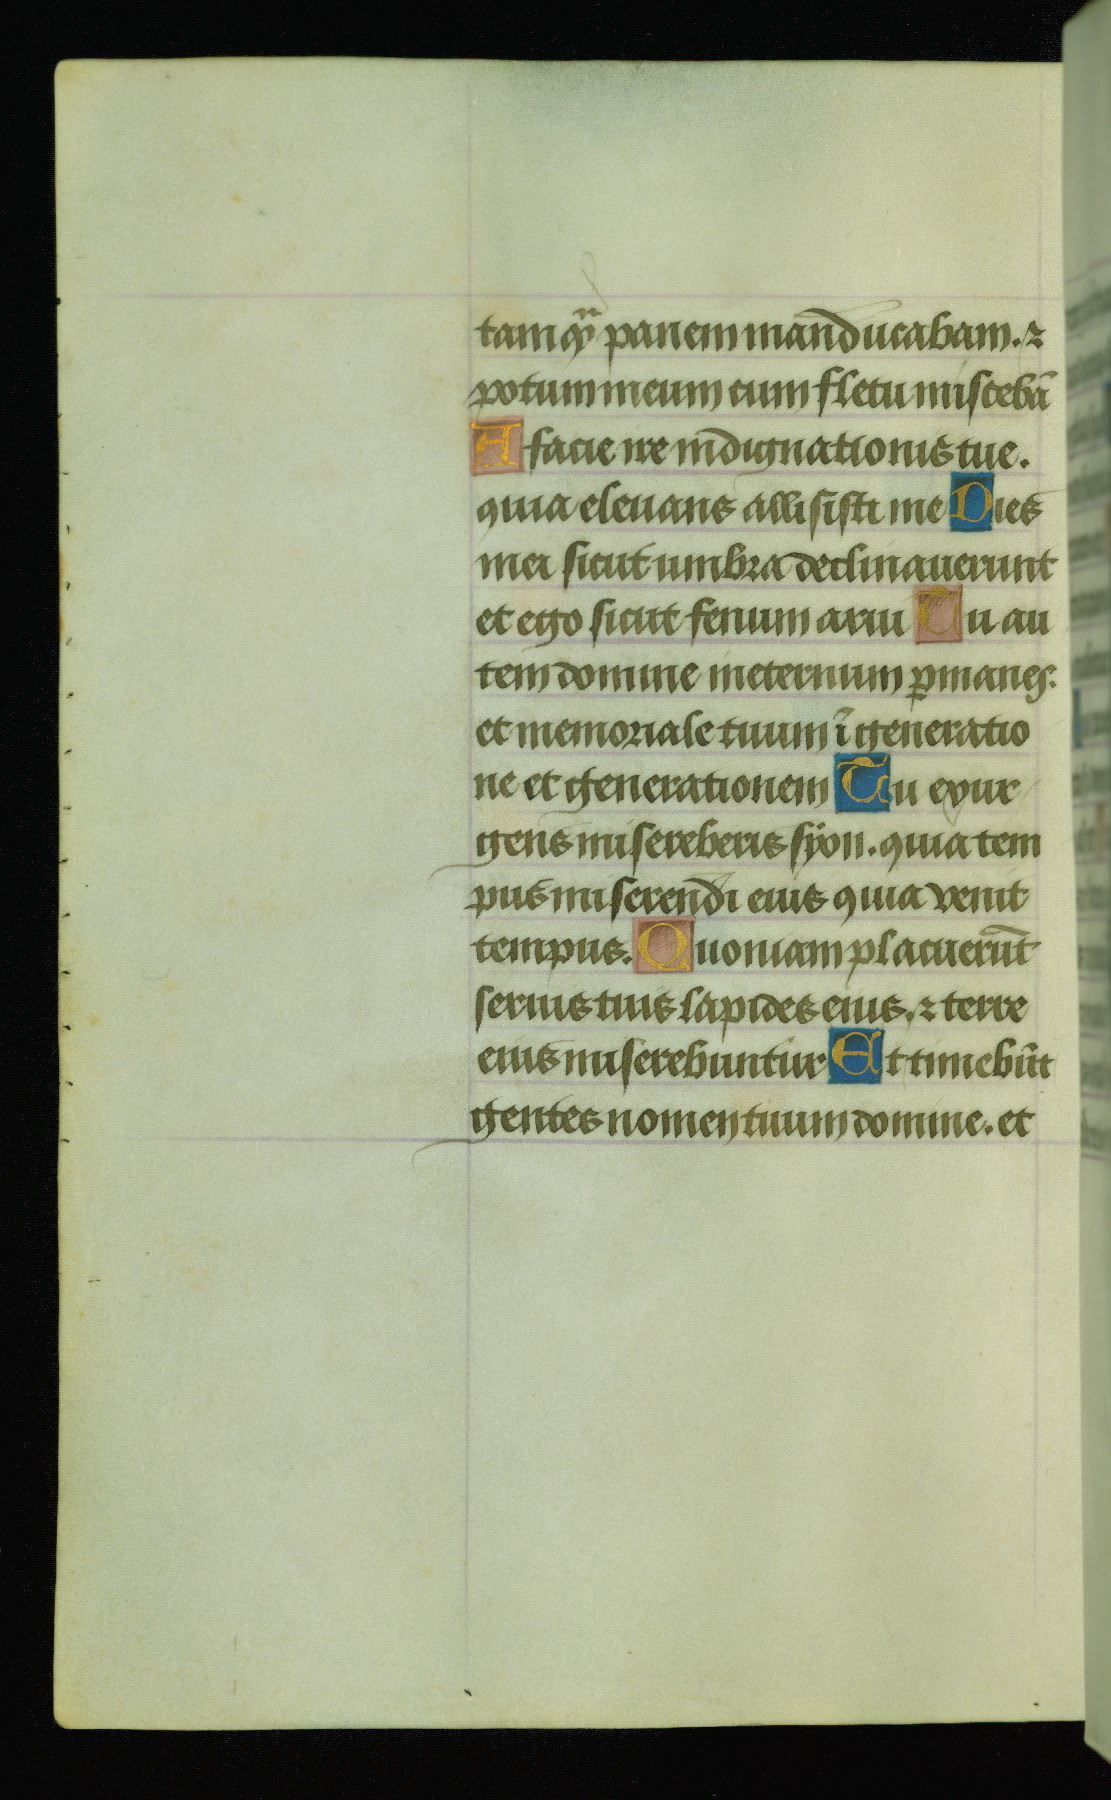 tamqͫ panem manducabam. ⁊
potum meum cum fletu miscebā
A facie ire indignationis tue.
quia elevans allisisti me Dies
mei sicut umbra declinaverunt
et ego sicut fenum arui Tu au
tem domine ineternum ꝑmanes.
et memoriale tuum ī generatio
ne et generationem Tu exur
gens misereberis syon. quia tem
pus miserendi eius quia venit
tempus. Quoniam placuerūt
servis tuis lapides eius. ⁊ terre
eius miserebuntur Et timebūt
gentes nomen tuum domine. et